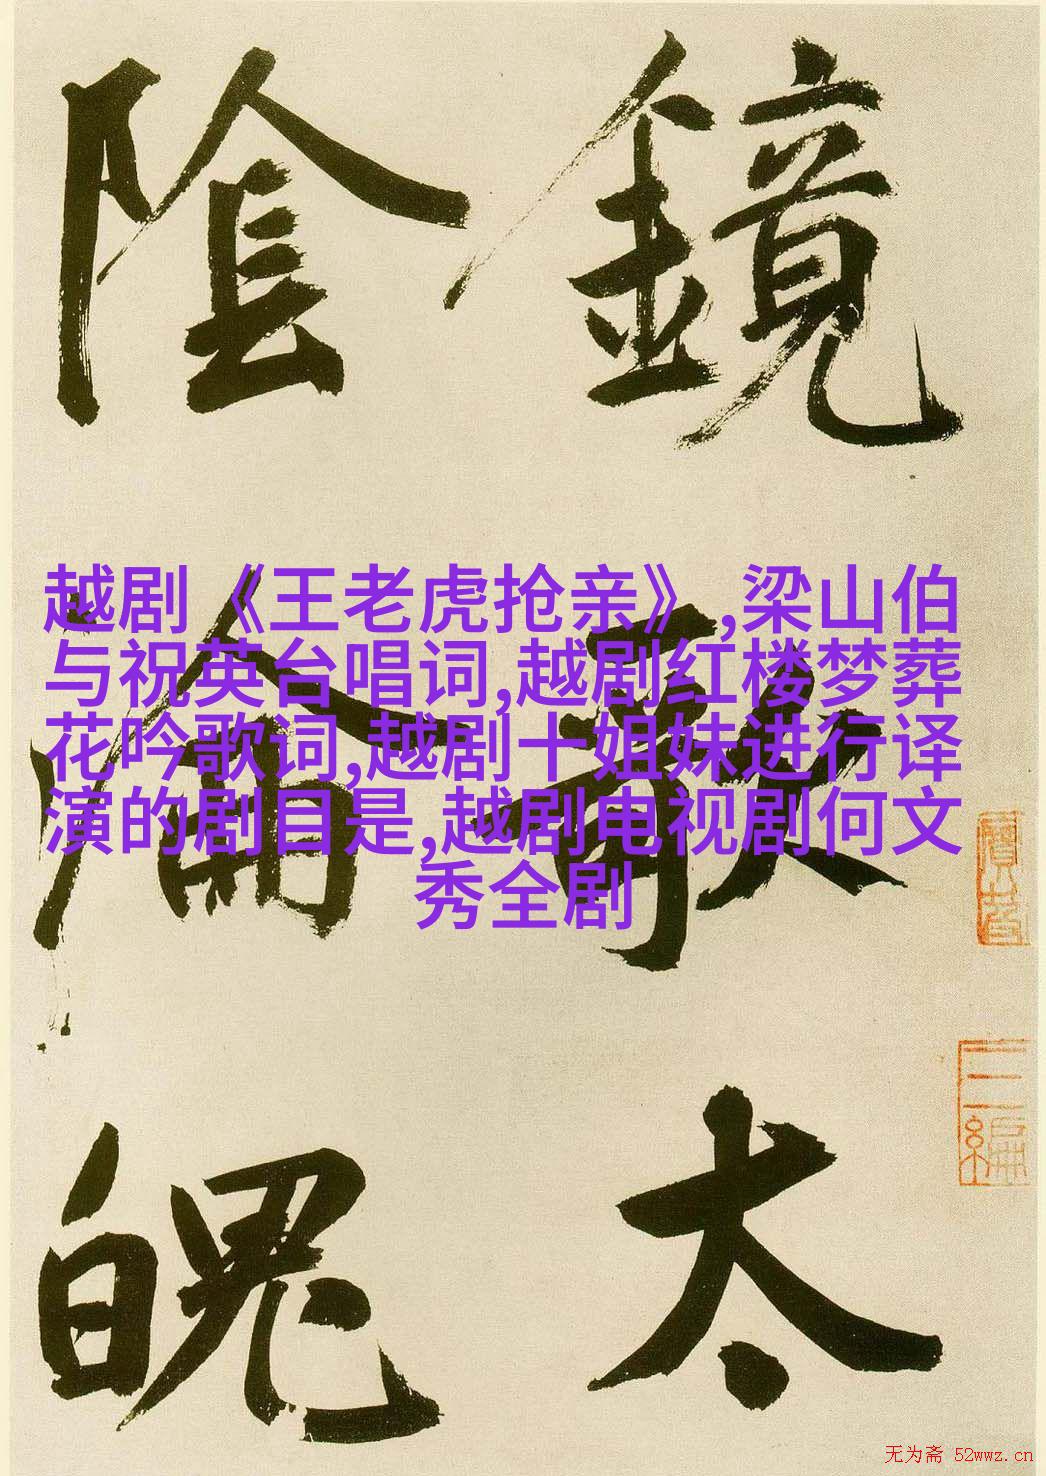 鏡歌太
陰淪魄
越剧《王老虎抢亲》,梁山伯
与祝英台唱词,越剧红楼梦葬
花吟歌词,越剧十姐妹进行译
演的剧目是,越剧电视剧何文
秀全剧
无为斋 52wwz.cn